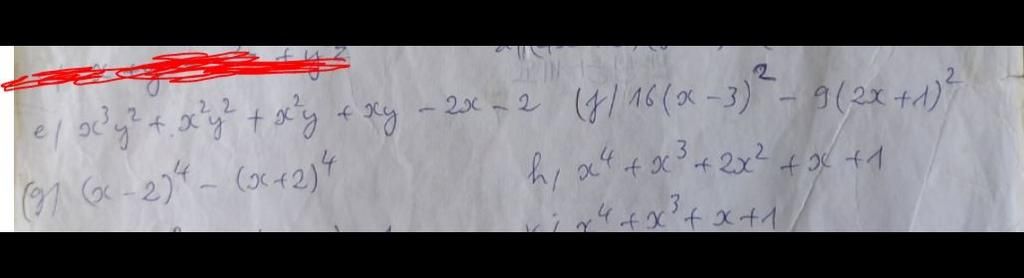 e/ x³y² + x²y² + x²y + xy - 2x - 2 (f/ 16(x-3)² - 9(2x+1)²
(g/ (x-2)⁴ - (x+2)⁴ h/ x⁴ + x³ + 2x² + x + 1
x⁴ + x³ + x + 1